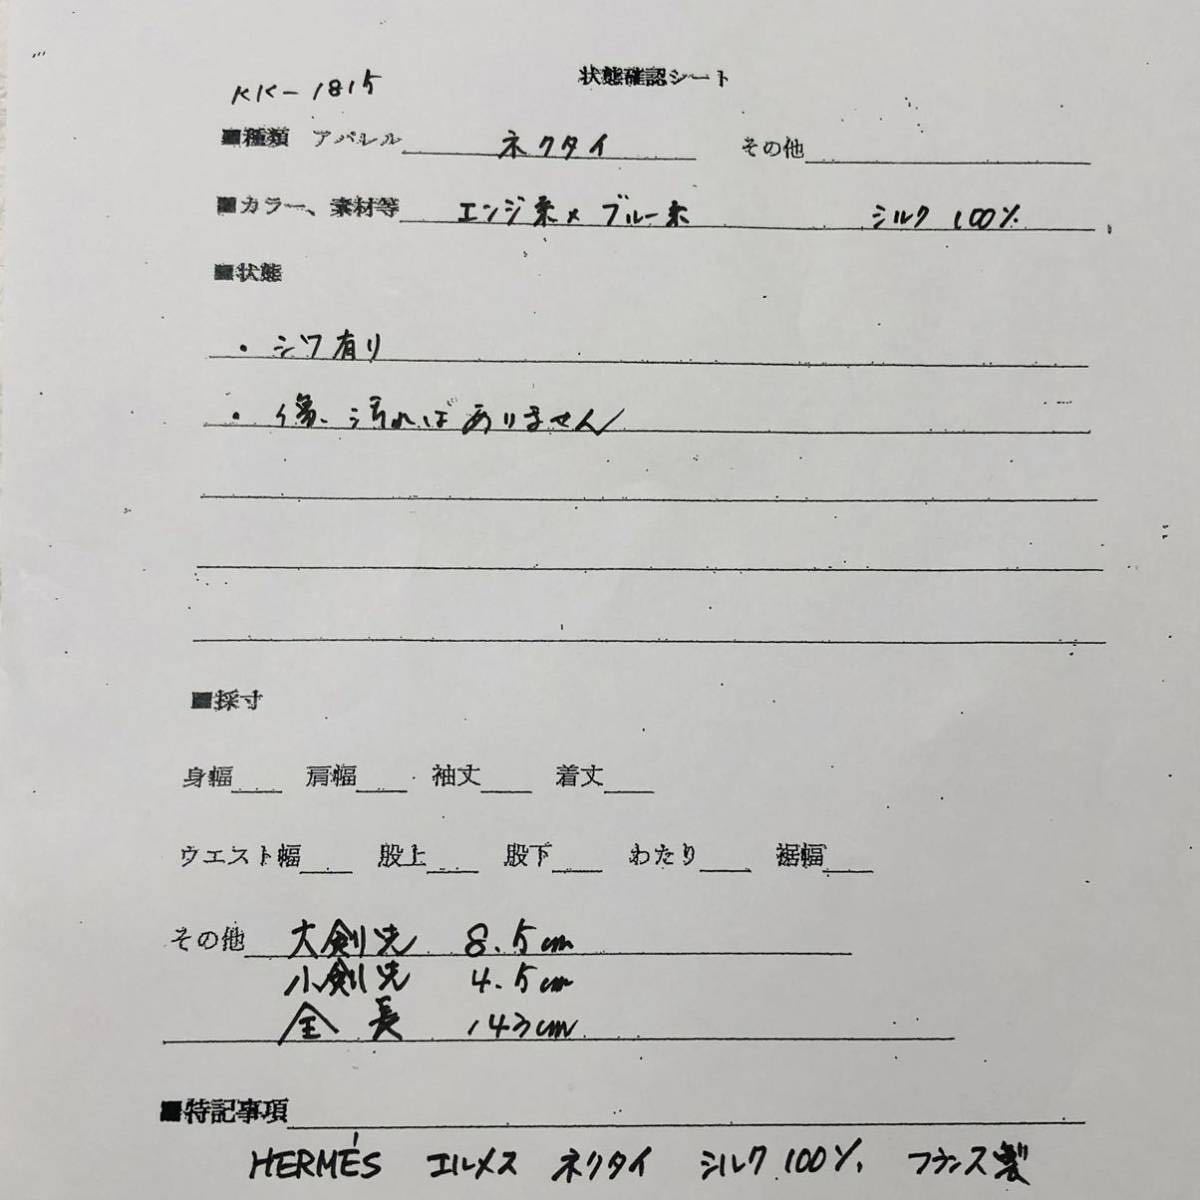 状態確認シート
KK-1815
■種類 アパレル ネクタイ その他
■カラー、素材等 エンジ系×ブルー系 シルク 100%
■状態
・シワ有り
・傷、汚ればありません
■採寸
身幅 肩幅 袖丈 着丈
ウエスト幅 股上 股下 わたり 裾幅
その他 大剣先 8.5cm
小剣先 4.5cm
全長 143cm
■特記事項
HERMÉS エルメス ネクタイ シルク100% フランス製